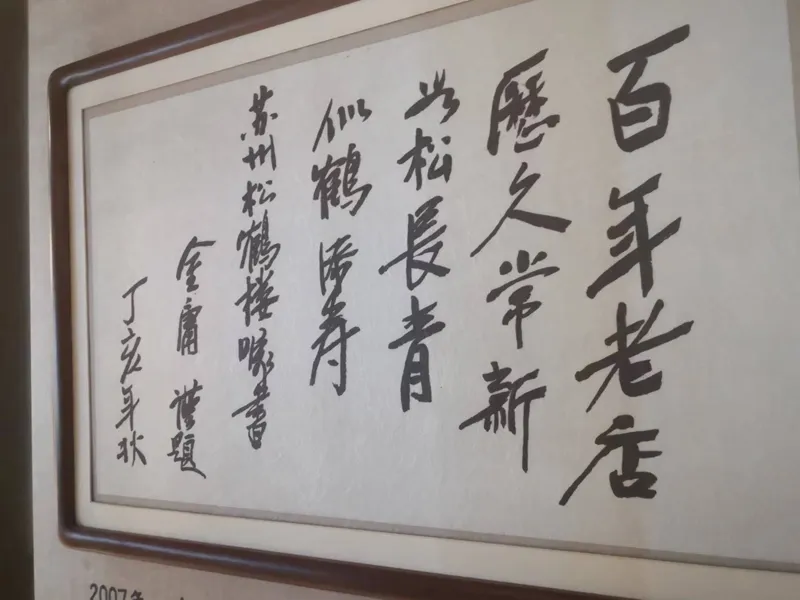 百年老店
歷久常新
如松長青
似鶴添寿
苏州松鶴楼嘱書
金庸 谨題
丁亥年秋
2007年